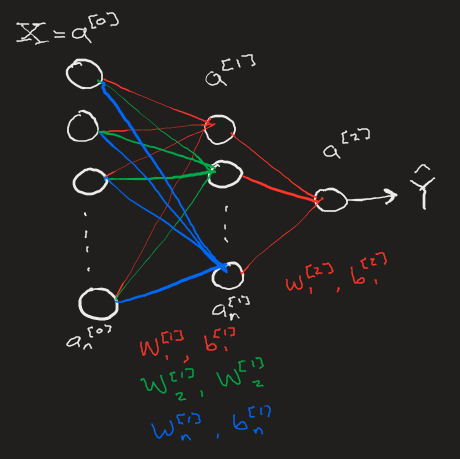 X = a^[0]
a^[1]
a^[2]
Ŷ
a_n^[0]
a_n^[1]
W_1^[2], b_1^[2]
W_1^[1], b_1^[1]
W_2^[1], W_2^[1]
W_n^[1], b_n^[1]